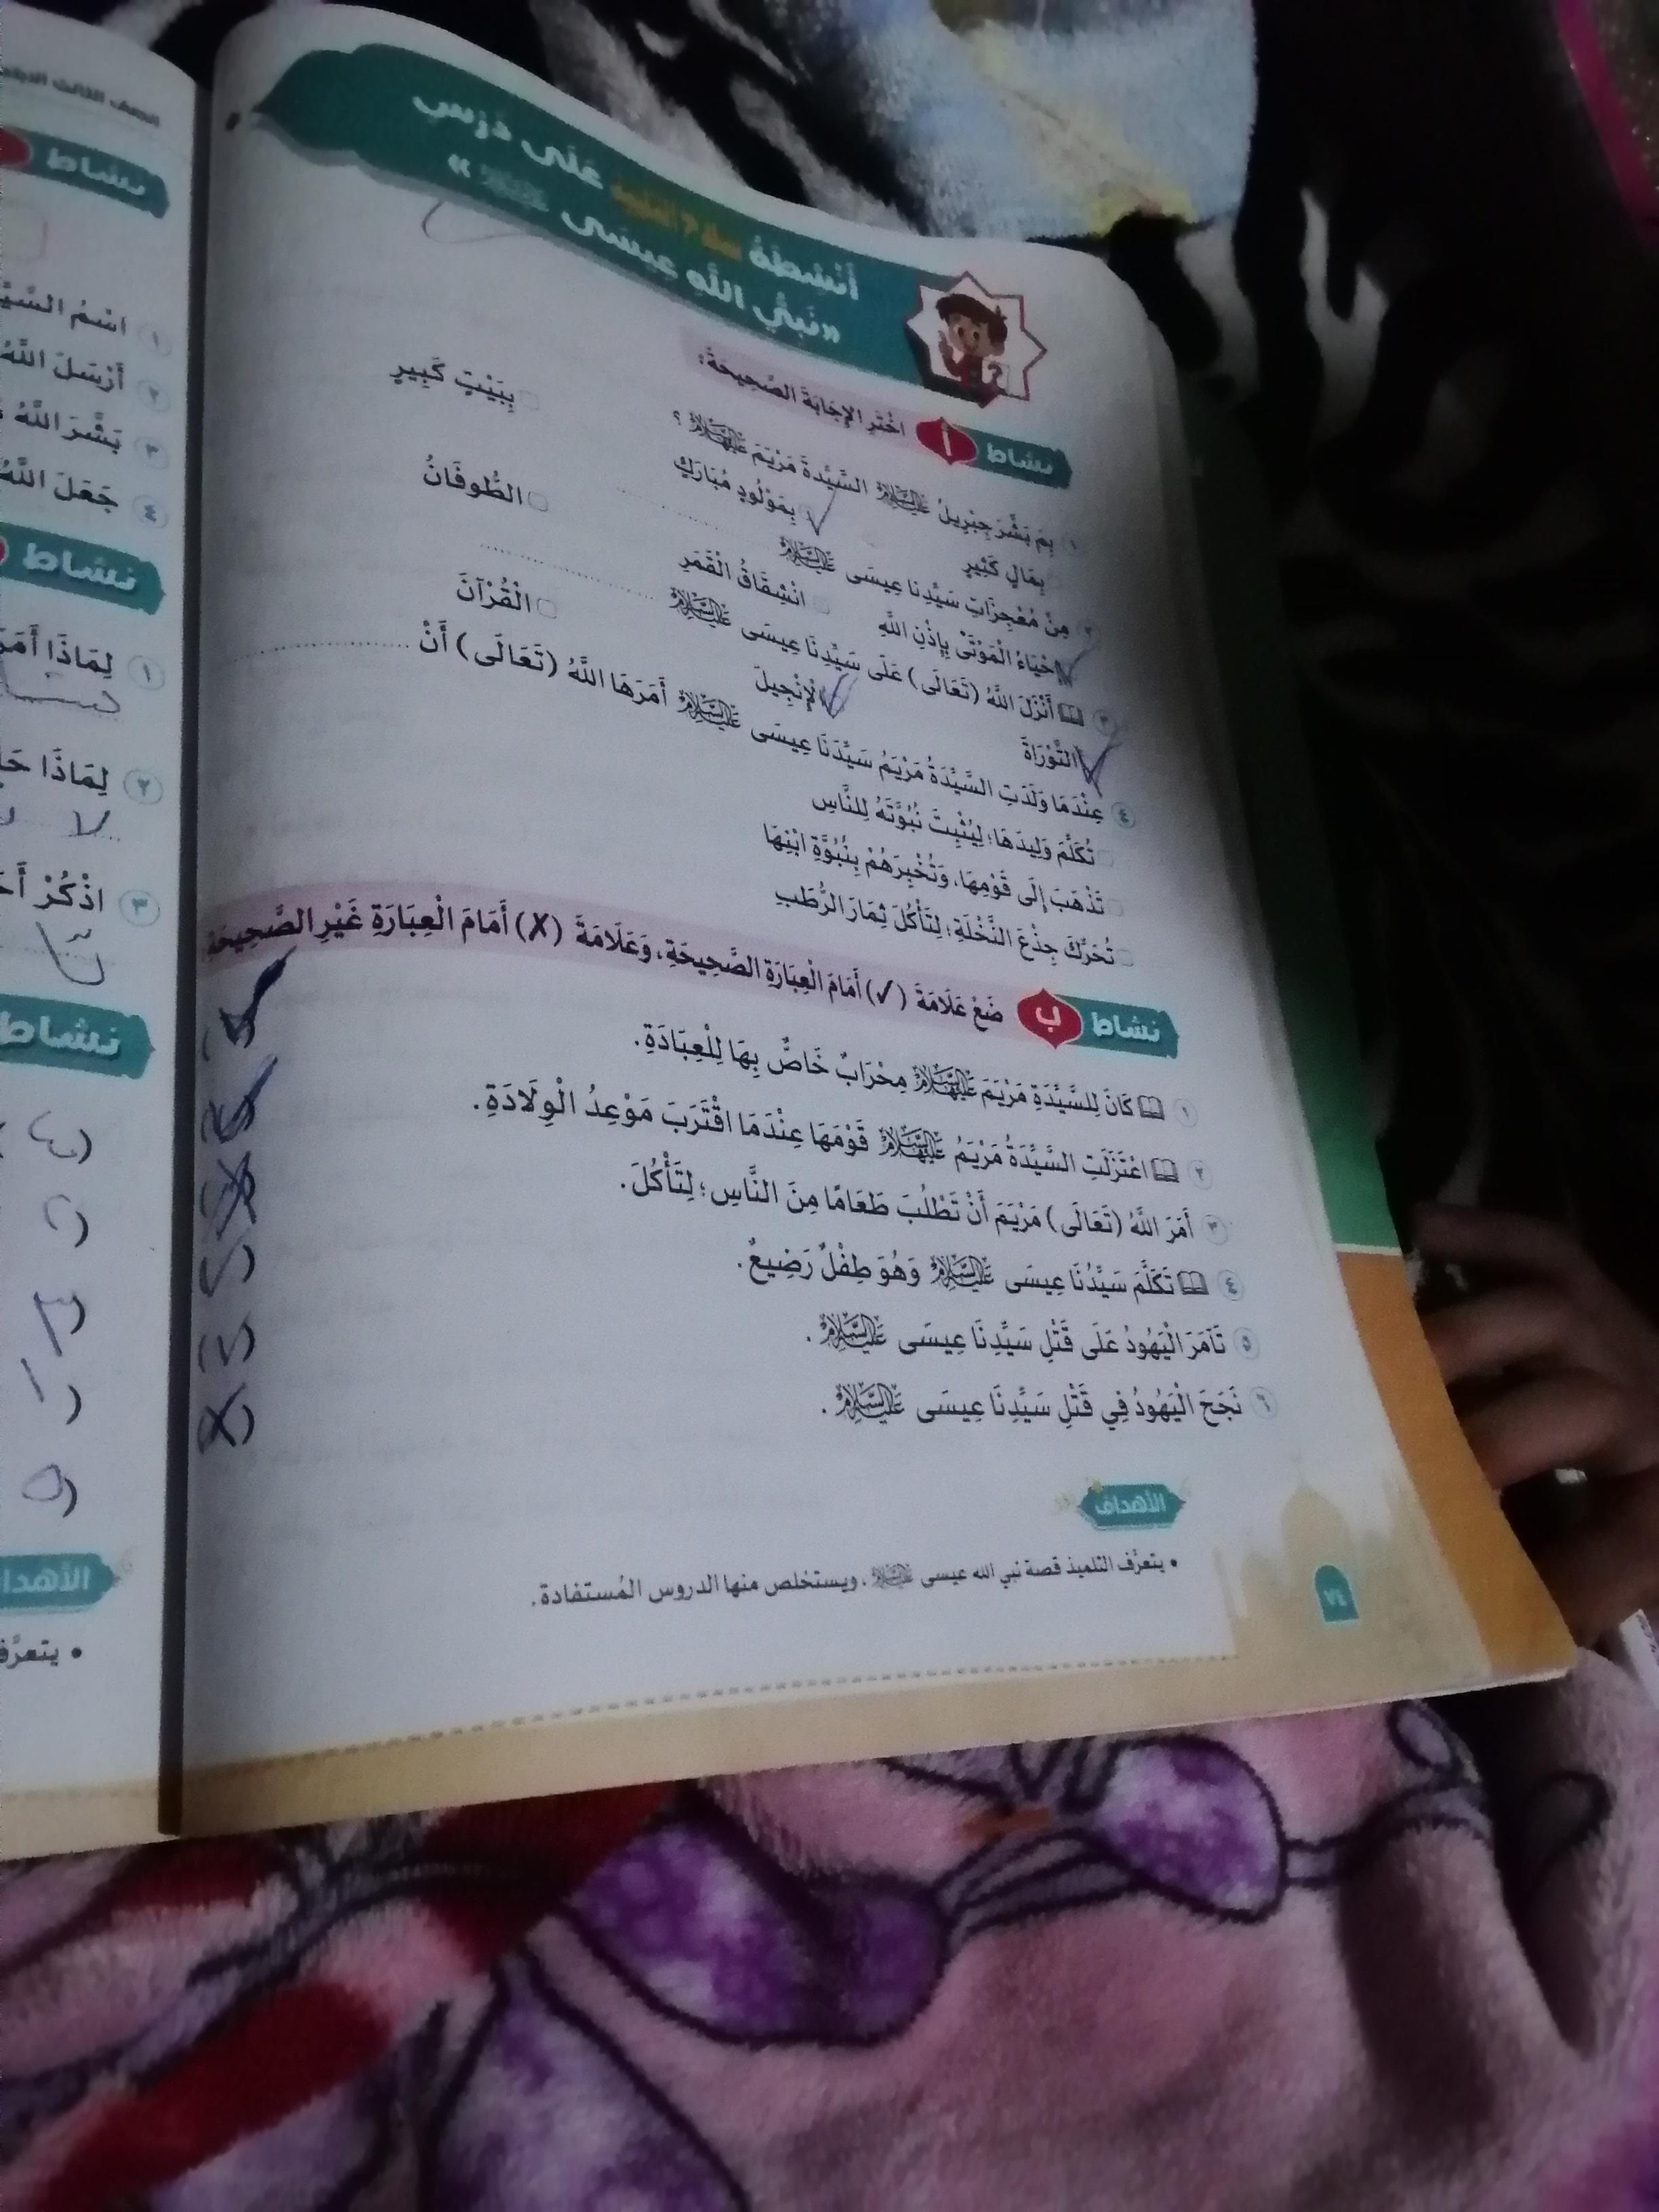 أَنْشِطَةُ سلاح التلميذ عَلَى دَرْسِ
«نَبِيُّ اللَّهِ عِيسَى عليه السلام»
نشاط أ اخْتَرِ الإِجَابَةَ الصَّحِيحَةَ:
١ بِمَ بَشَّرَ جِبْرِيلُ عليه السلام السَّيِّدَةَ مَرْيَمَ عليها السلام؟
بِمَالٍ كَثِيرٍ بِمَوْلُودٍ مُبَارَكٍ بِبَيْتٍ كَبِيرٍ
٢ مِنْ مُعْجِزَاتِ سَيِّدِنَا عِيسَى عليه السلام ............
إِحْيَاءُ الْمَوْتَى بِإِذْنِ اللَّهِ انْشِقَاقُ الْقَمَرِ الطُّوفَانُ
٣ أَنْزَلَ اللَّهُ (تَعَالَى) عَلَى سَيِّدِنَا عِيسَى عليه السلام ............
التَّوْرَاةَ الإِنْجِيلَ الْقُرْآنَ
٤ عِنْدَمَا وَلَدَتِ السَّيِّدَةُ مَرْيَمُ سَيِّدَنَا عِيسَى عليه السلام أَمَرَهَا اللَّهُ (تَعَالَى) أَنْ ............
تُكَلِّمَ وَلِيدَهَا؛ لِيُثْبِتَ نُبُوَّتَهُ لِلنَّاسِ
تَذْهَبَ إِلَى قَوْمِهَا، وَتُخْبِرَهُمْ بِنُبُوَّةِ ابْنِهَا
تُحَرِّكَ جِذْعَ النَّخْلَةِ؛ لِتَأْكُلَ ثِمَارَ الرُّطَبِ
نشاط ب ضَعْ عَلَامَةَ (✓) أَمَامَ الْعِبَارَةِ الصَّحِيحَةِ، وَعَلَامَةَ (X) أَمَامَ الْعِبَارَةِ غَيْرِ الصَّحِيحَةِ
١ كَانَ لِلسَّيِّدَةِ مَرْيَمَ عليها السلام مِحْرَابٌ خَاصٌّ بِهَا لِلْعِبَادَةِ. (✓)
٢ اعْتَزَلَتِ السَّيِّدَةُ مَرْيَمُ عليها السلام قَوْمَهَا عِنْدَمَا اقْتَرَبَ مَوْعِدُ الْوِلَادَةِ. (✓)
٣ أَمَرَ اللَّهُ (تَعَالَى) مَرْيَمَ أَنْ تَطْلُبَ طَعَامًا مِنَ النَّاسِ؛ لِتَأْكُلَ. (X)
٤ تَكَلَّمَ سَيِّدُنَا عِيسَى عليه السلام وَهُوَ طِفْلٌ رَضِيعٌ. (✓)
٥ تَآمَرَ الْيَهُودُ عَلَى قَتْلِ سَيِّدِنَا عِيسَى عليه السلام. (✓)
٦ نَجَحَ الْيَهُودُ فِي قَتْلِ سَيِّدِنَا عِيسَى عليه السلام. (X)
الأهداف
• يتعرَّف التلميذ قصة نبي الله عيسى عليه السلام، ويستخلص منها الدروس المُستفادة.
٧٤
نشاط
١ اسْمُ
٢ أَرْسَلَ اللَّهُ
٣ بَشَّرَ اللَّهُ
٤ جَعَلَ اللَّهُ
نشاط
١ لِمَاذَا
٢ لِمَاذَا
٣ اذْكُرْ
نشاط